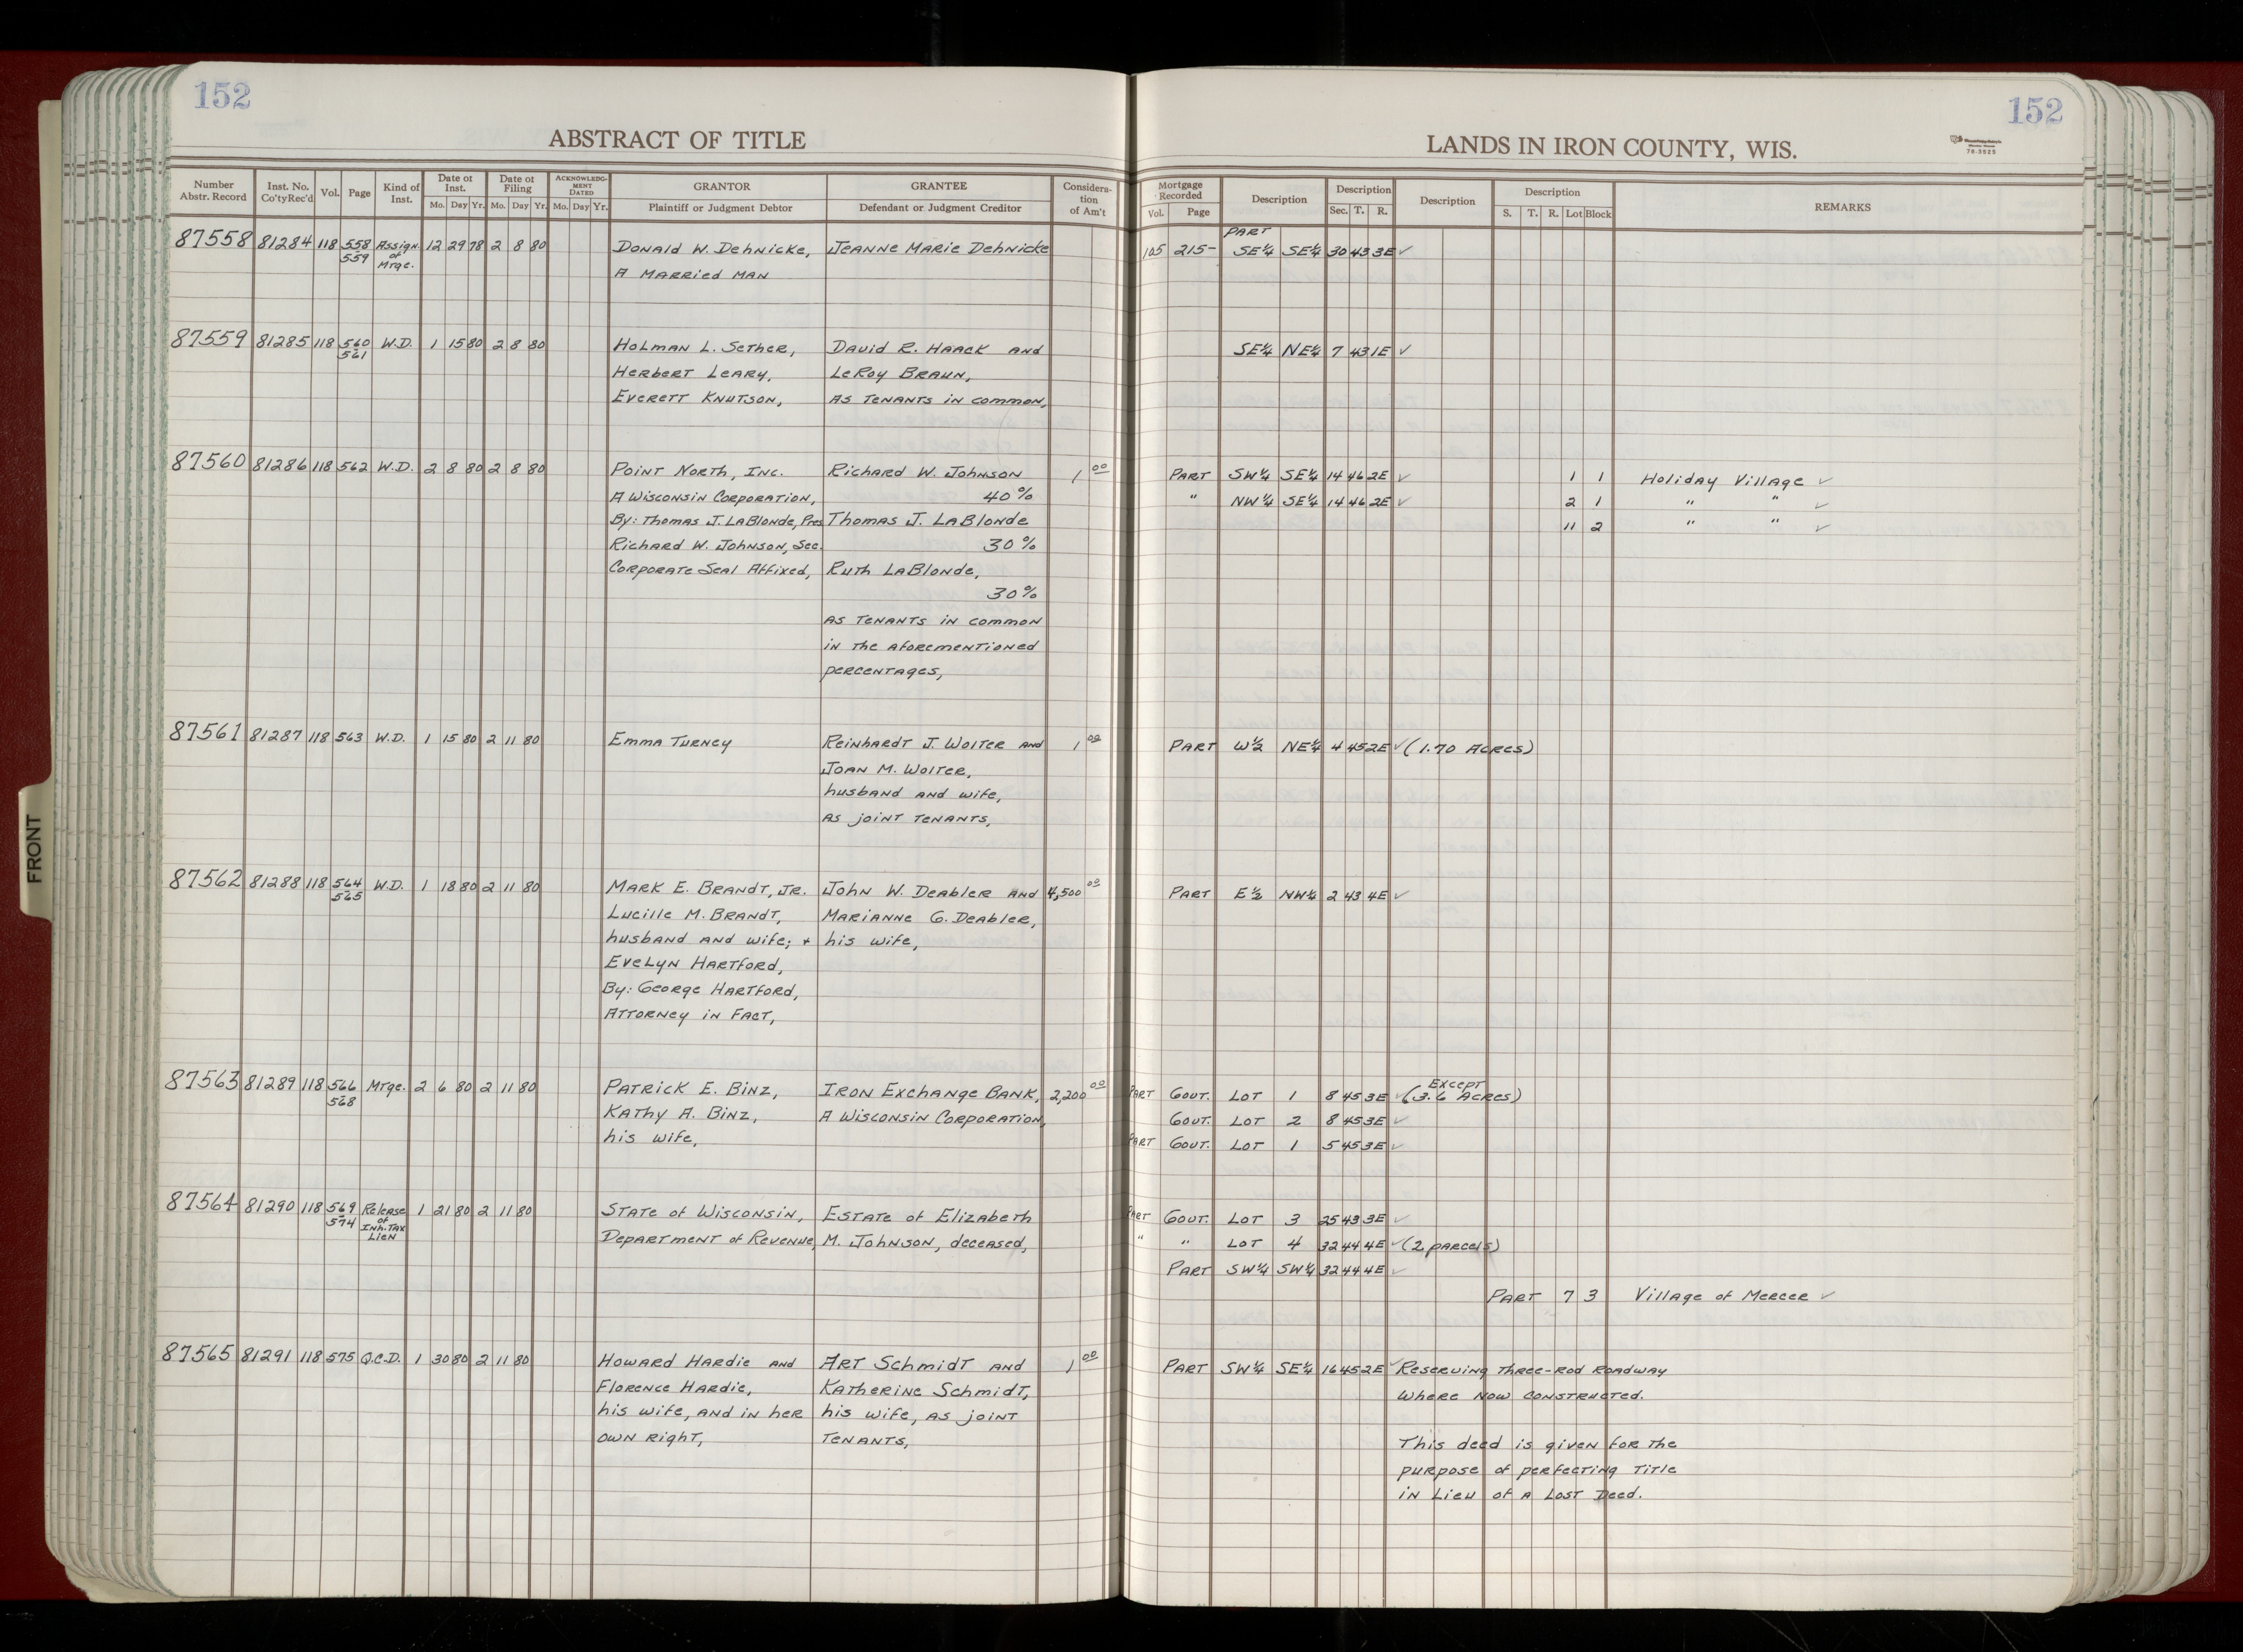 152
152
ABSTRACT OF TITLE
LANDS IN IRON COUNTY, WIS.
78-3525
Number Abstr. Record
Inst. No. Co'ty Rec'd
Vol.
Page
Kind of Inst.
Date of Inst.
Mo. Day Yr.
Date of Filing
Mo. Day Yr.
ACKNOWLEDG-MENT DATED
Mo. Day Yr.
GRANTOR
Plaintiff or Judgment Debtor
GRANTEE
Defendant or Judgment Creditor
Considera-tion of Am't
Mortgage Recorded
Vol. Page
Description
Description
Sec. T. R.
Description
Description
S. T. R. Lot Block
REMARKS
PART
87558 81284 118 558 Assign. 12 29 78 2 8 80 Donald W. Dehnicke, Jeanne Marie Dehnicke 105 215- SE¼ SE¼ 30 43 3E ✓
559 of Mtge. A Married Man
87559 81285 118 560 W.D. 1 15 80 2 8 80 Holman L. Sether, David R. Haack and SE¼ NE¼ 7 43 1E ✓
561 Herbert Leary, LeRoy Braun,
Everett Knutson, as tenants in common,
87560 81286 118 562 W.D. 2 8 80 2 8 80 Point North, Inc. Richard W. Johnson 1 00 Part SW¼ SE¼ 14 46 2E ✓ 1 1 Holiday Village ✓
A Wisconsin Corporation, 40% " NW¼ SE¼ 14 46 2E ✓ 2 1 " " ✓
By: Thomas J. LaBlonde, Pres Thomas J. LaBlonde 11 2 " " ✓
Richard W. Johnson, Sec. 30%
Corporate Seal Affixed, Ruth LaBlonde,
30%
as tenants in common
in the aforementioned
percentages,
87561 81287 118 563 W.D. 1 15 80 2 11 80 Emma Turney Reinhardt J. Wolter and 1 00 Part W½ NE¼ 4 45 2E ✓ (1.70 Acres)
Joan M. Wolter,
husband and wife,
as joint tenants,
87562 81288 118 564 W.D. 1 18 80 2 11 80 Mark E. Brandt, Jr. John W. Deabler and 4,500 00 Part E½ NW¼ 2 43 4E ✓
565 Lucille M. Brandt, Marianne G. Deabler,
husband and wife; + his wife,
Evelyn Hartford,
By: George Hartford,
Attorney in Fact,
87563 81289 118 566 Mtge. 2 6 80 2 11 80 Patrick E. Binz, Iron Exchange Bank, 2,200 00 Part Govt. Lot 1 8 45 3E ✓ Except (3.6 Acres)
568 Kathy A. Binz, A Wisconsin Corporation, Govt. Lot 2 8 45 3E ✓
his wife, Part Govt. Lot 1 5 45 3E ✓
87564 81290 118 569 Release 1 21 80 2 11 80 State of Wisconsin, Estate of Elizabeth Part Govt. Lot 3 25 43 3E ✓
574 of Inh. Tax Lien Department of Revenue, M. Johnson, deceased, " " Lot 4 32 44 4E ✓ (2 parcels)
Part SW¼ SW¼ 32 44 4E ✓
Part 7 3 Village of Mercer ✓
87565 81291 118 575 Q.C.D. 1 30 80 2 11 80 Howard Hardie and Art Schmidt and 1 00 Part SW¼ SE¼ 16 45 2E ✓ Reserving three-rod roadway
Florence Hardie, Katherine Schmidt, where now constructed.
his wife, and in her his wife, as joint
own right, tenants,
This deed is given for the
purpose of perfecting title
in lieu of a lost deed.
FRONT